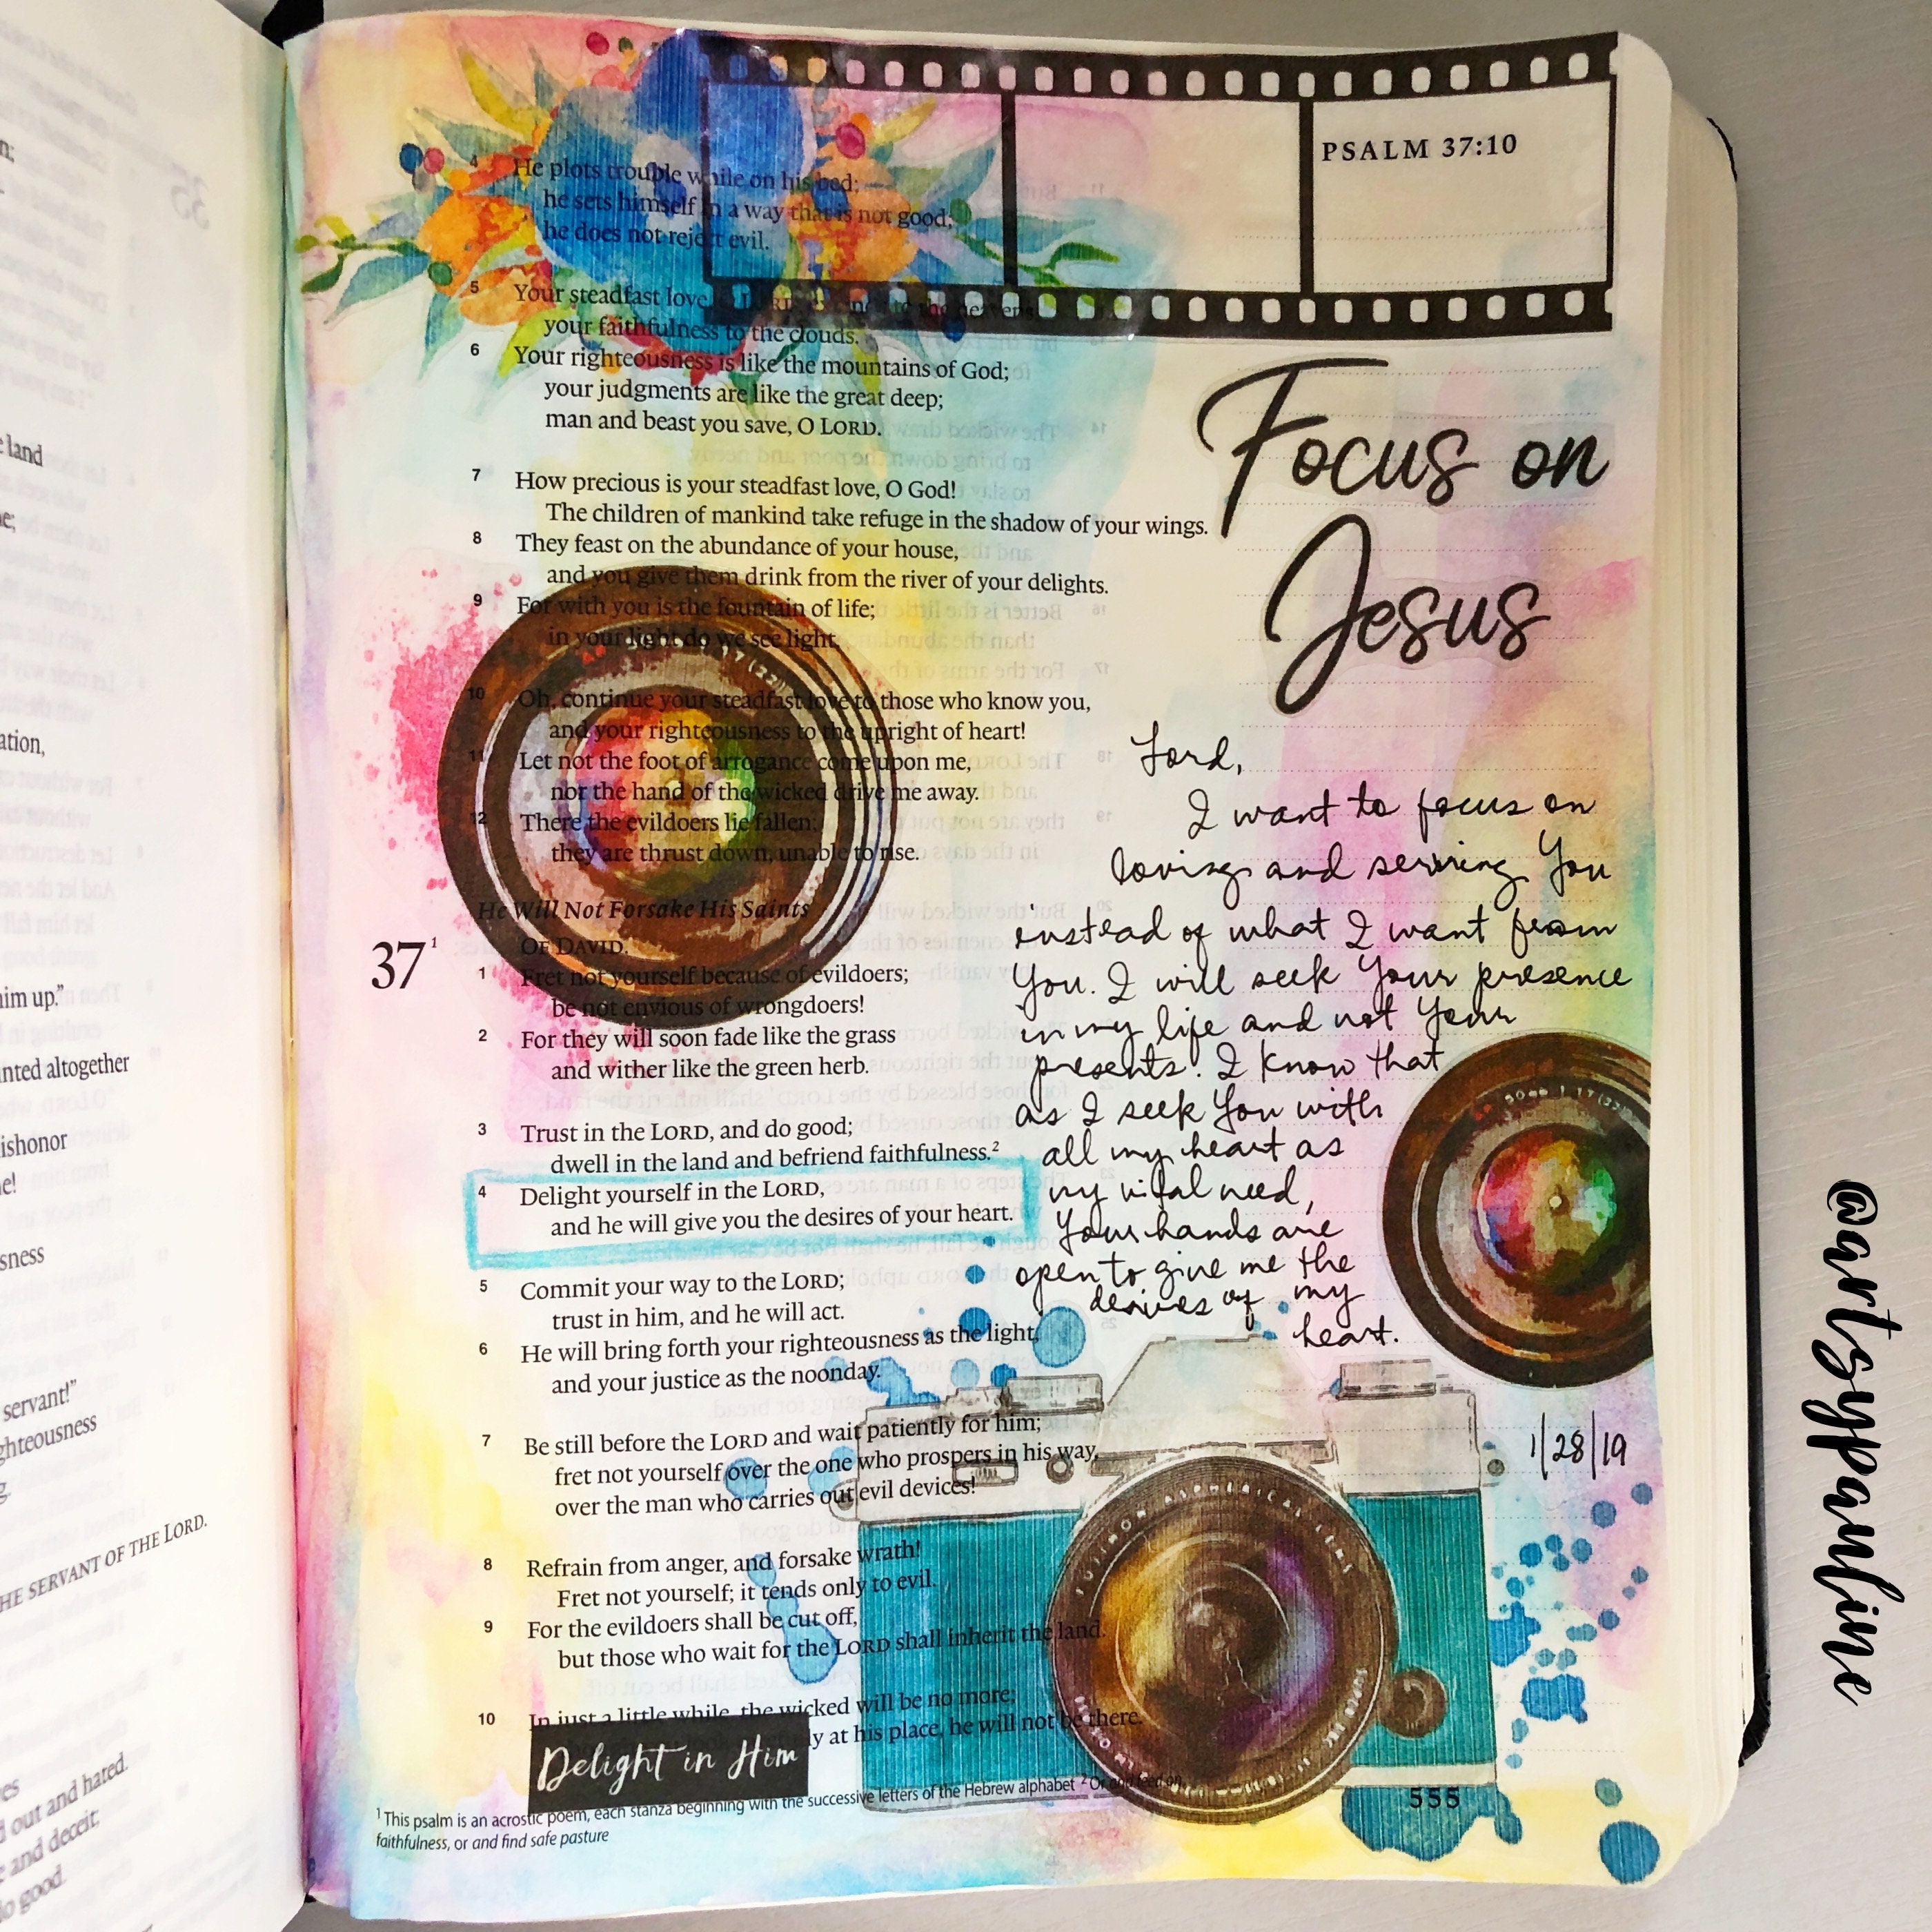 PSALM 37:10
4 He plots trouble while on his bed;
he sets himself in a way that is not good;
he does not reject evil.
5 Your steadfast love, O LORD, extends to the heavens,
your faithfulness to the clouds.
6 Your righteousness is like the mountains of God;
your judgments are like the great deep;
man and beast you save, O LORD.
7 How precious is your steadfast love, O God!
The children of mankind take refuge in the shadow of your wings.
8 They feast on the abundance of your house,
and you give them drink from the river of your delights.
9 For with you is the fountain of life;
in your light do we see light.
10 Oh, continue your steadfast love to those who know you,
and your righteousness to the upright of heart!
11 Let not the foot of arrogance come upon me,
nor the hand of the wicked drive me away.
12 There the evildoers lie fallen;
they are thrust down, unable to rise.
He Will Not Forsake His Saints
37 1 OF DAVID.
1 Fret not yourself because of evildoers;
be not envious of wrongdoers!
2 For they will soon fade like the grass
and wither like the green herb.
3 Trust in the LORD, and do good;
dwell in the land and befriend faithfulness.2
4 Delight yourself in the LORD,
and he will give you the desires of your heart.
5 Commit your way to the LORD;
trust in him, and he will act.
6 He will bring forth your righteousness as the light,
and your justice as the noonday.
7 Be still before the LORD and wait patiently for him;
fret not yourself over the one who prospers in his way,
over the man who carries out evil devices!
8 Refrain from anger, and forsake wrath!
Fret not yourself; it tends only to evil.
9 For the evildoers shall be cut off,
but those who wait for the LORD shall inherit the land.
10 In just a little while, the wicked will be no more;
at his place, he will not be there.
Delight in Him
1 This psalm is an acrostic poem, each stanza beginning with the successive letters of the Hebrew alphabet 2 Or and feed on
faithfulness, or and find safe pasture
555
Focus on
Jesus
Lord,
I want to focus on
loving and serving You
instead of what I want from
You. I will seek Your presence
in my life and not Your
presents. I know that
as I seek You with
all my heart as
my vital need,
Your hands are
open to give me the
desires of my
heart.
1/28/19
@artsypauline
land
ation,
him up."
nted altogether
ishonor
sness
servant!"
ghteousness
HE SERVANT OF THE LORD.
out and hated.
and deceit;
o good.